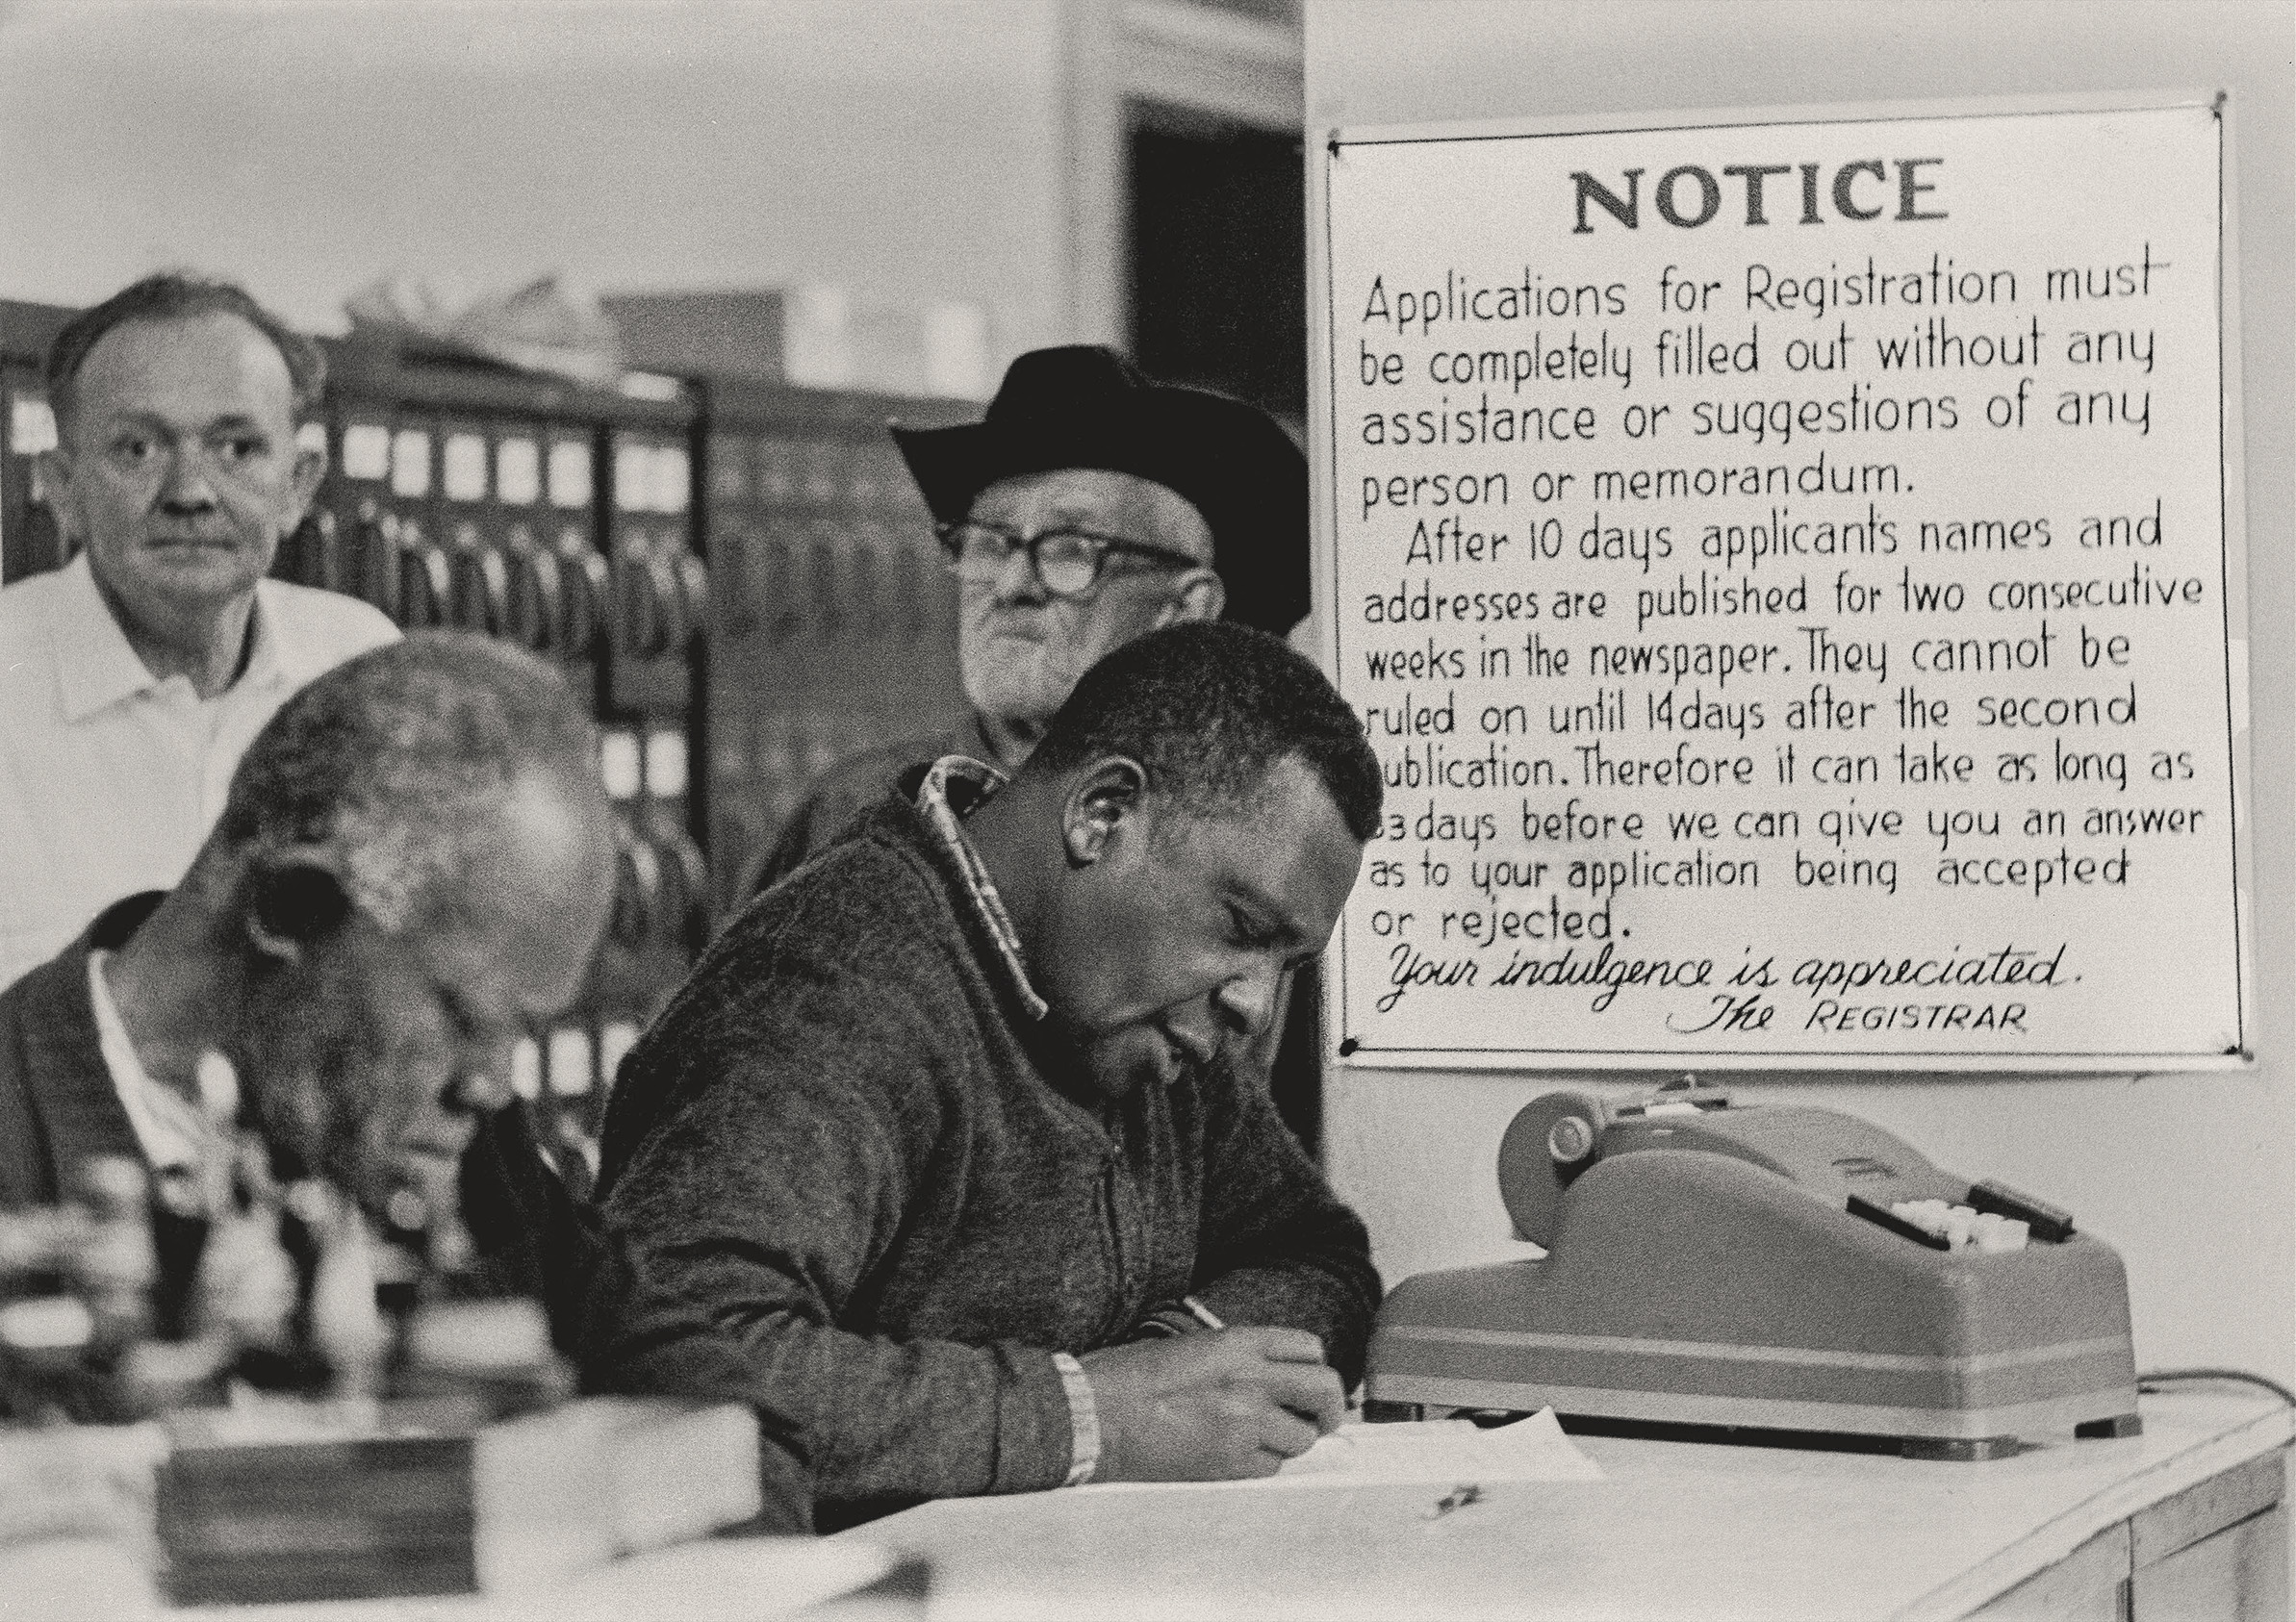 NOTICE
Applications for Registration must
be completely filled out without any
assistance or suggestions of any
person or memorandum.
After 10 days applicants names and
addresses are published for two consecutive
weeks in the newspaper. They cannot be
ruled on until 14 days after the second
ublication. Therefore it can take as long as
33 days before we can give you an answer
as to your application being accepted
or rejected.
Your indulgence is appreciated.
The REGISTRAR